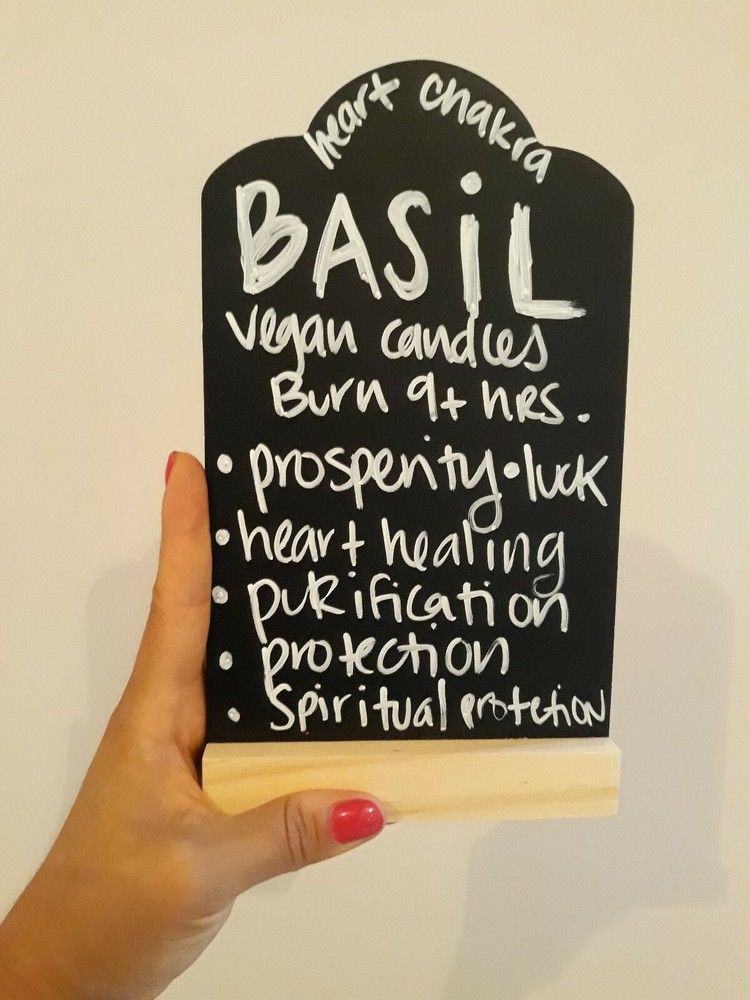 heart chakra
BASiL
vegan candles
Burn 9+ hRS.
• prosperity • luck
• heart healing
• puRification
• protection
• Spiritual protetion